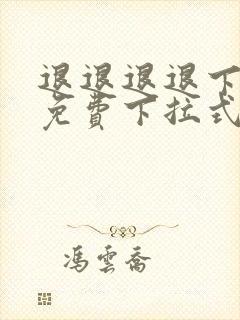 退退退退下
免費下拉式
馮雲喬